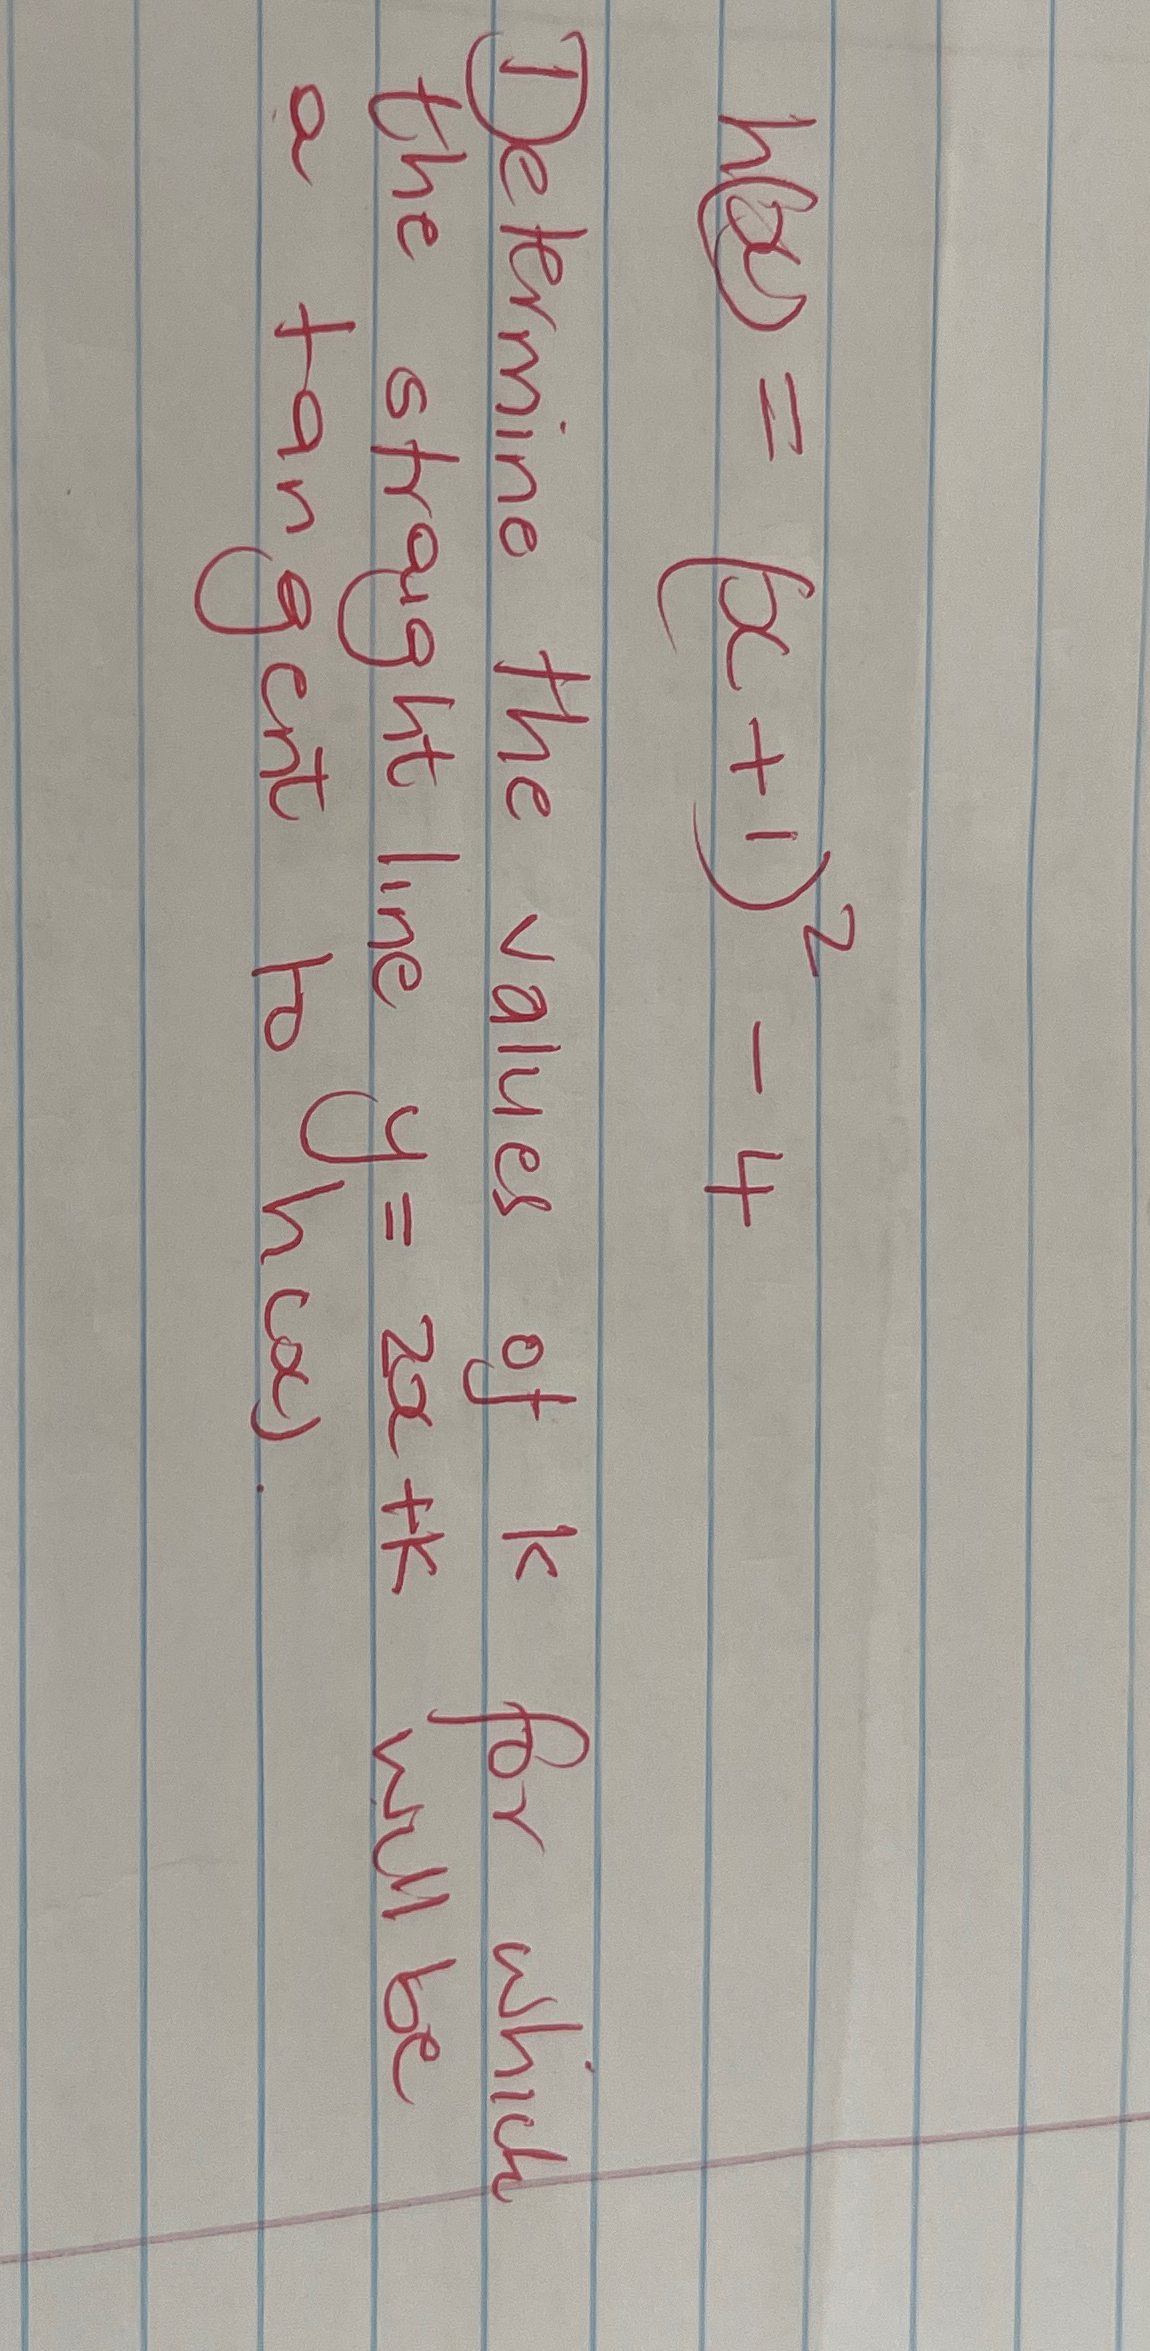 h(x) = (x + 1)² - 4
Determine the values of k for which
the straight line y = 2x + k will be
a tangent to h(x).